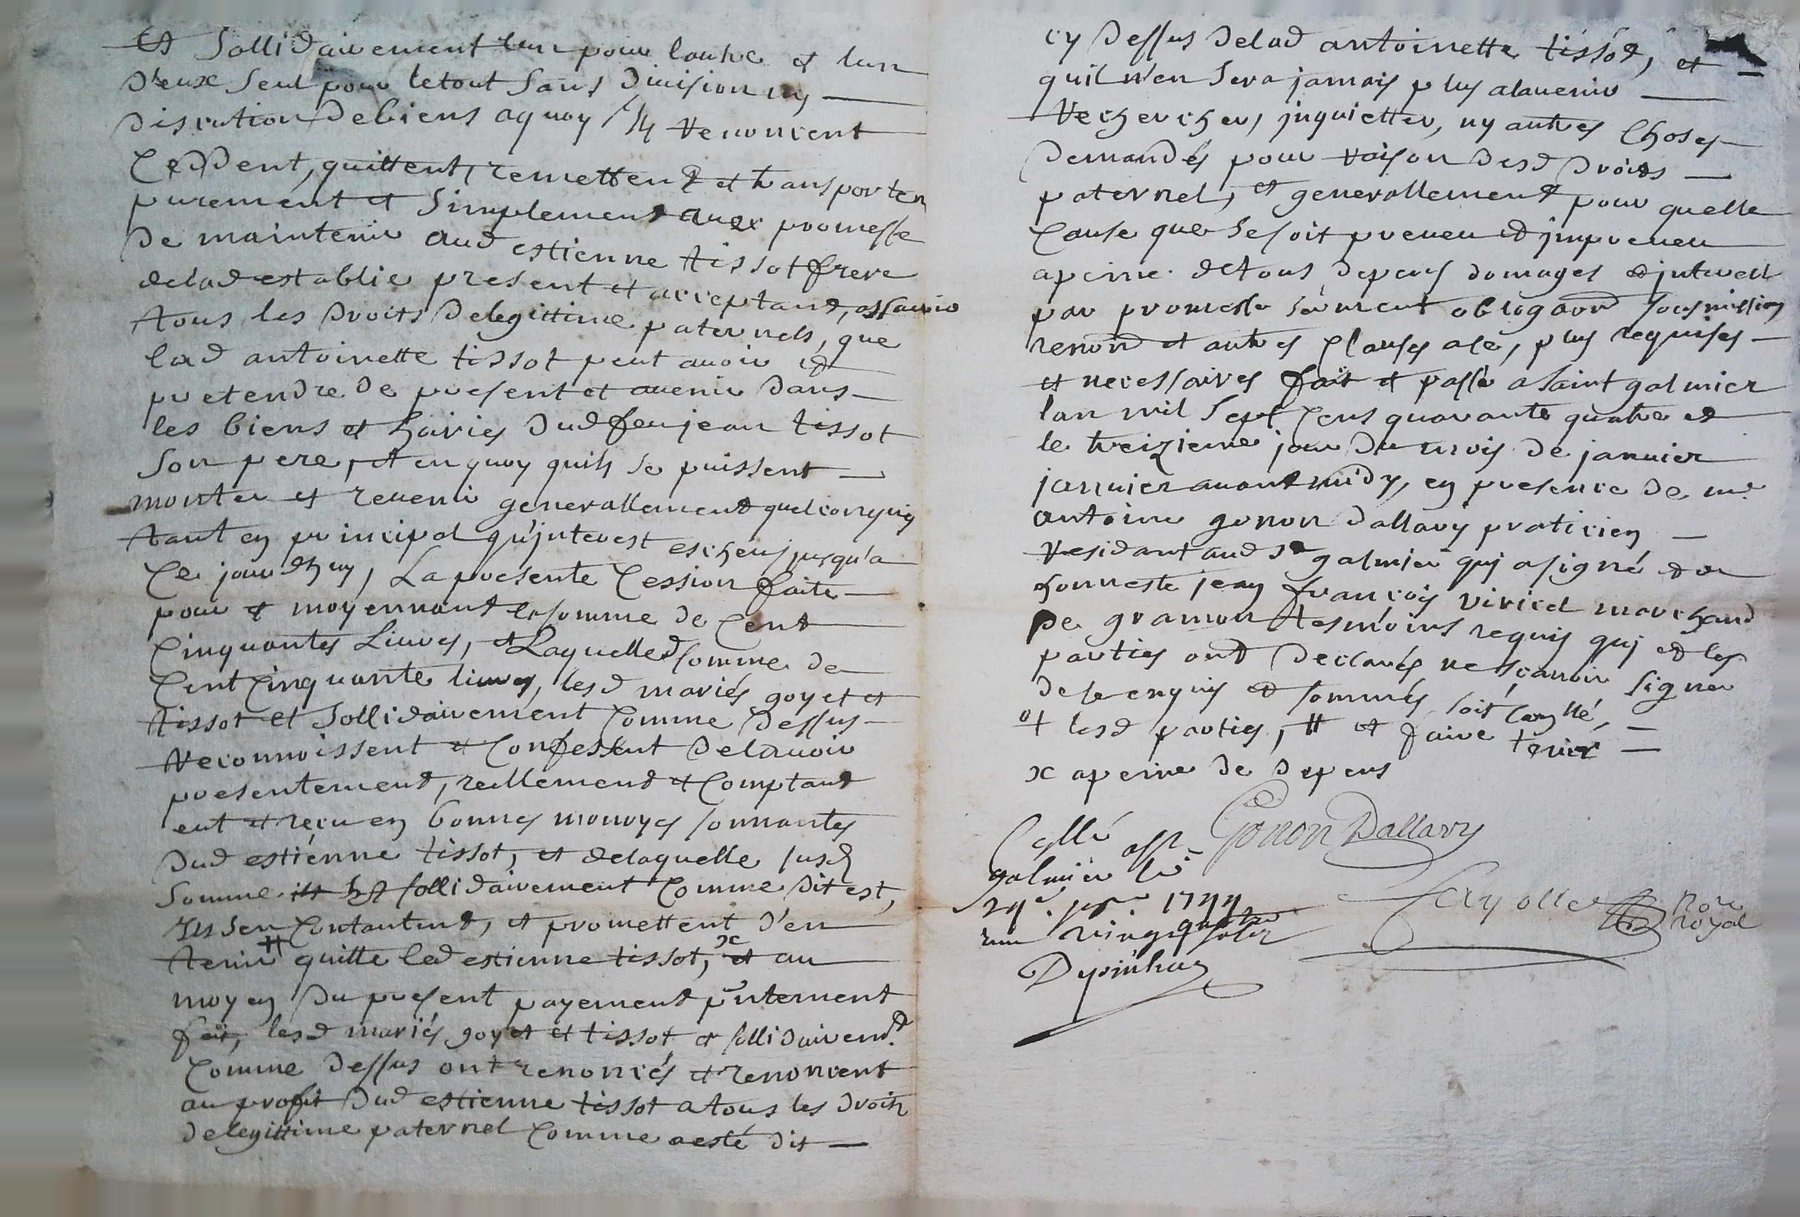 Et sollidairement lun pour lautre et lun
d'eux seul pour le tout sans division ny
discution de biens aquoy ils renoncent
Ceddent, quittent, remettent et transporten
purement et simplement avec promesse
de maintenir aud estienne tissot frere
delad establie present et acceptant, assavoir
tous les droits delegittime paternels, que
lad antoinette tissot peut avoir et
pretendre de present et avenir dans
les biens et hoiries dud feu jean tissot
son pere, et en quoy quils se puissent
monter et revenir generallement quelconques
tant en principal qu'jnterest escheus jusqu'a
Ce jourdhuy, La presente Cession faite
pour et moyennant la somme de Cent
Cinquantes Livres, Laquelle somme de
Cent Cinquante livres, lesd mariés goyet et
tissot et sollidairement Comme dessus
Reconnoissent et Confessent delavoir
presentement, reellement et Comptant
eut et reçu en bonnes monoyes sonnantes
dud estienne tissot, et delaquelle susd
somme sollidairement Comme dit est,
sen Contentent, et promettent d'en
tenir # quitte led estienne tissot, x et au
moyen du present payement p̃ntement
fait, lesd mariés goyet et tissot et sollidairemt
Comme dessus ont renoncés et renoncent
au profit dud estienne tissot a tous les droits
delegittime paternel Comme aesté dit
cy dessus delad antoinette tissot, et
quil n'en sera jamais plus alavenir
Rechercher, jnquietter, ny autres Choses
demandés pour raison desd droits
paternel, et generallement pour quelle
Cause que se soit preveu et jmpreveu
apeine de tous depens domages et jnterest
par promesse serment obligaon soumission
renond et autres Clauses a ce, plus requises
et necessaires fait et passé a saint galmier
lan mil sept Cens quarante quatre et
le treizieme jour du mois de janvier
janvier avant midy, en presence de me
antoine gonon dallary praticien
Residant aud st galmier qui a signé et de
honneste jean françois viricel marchand
De gramon tesmoins requis qui et les
parties ont declarés ne scavoir signer
de ce enquis et sommés soit Conllé,
lesd parties, # et faire tenir
x apeine de depens
Gonon Dallary
Cellé a st
galmier le
24e janr 1744
vingt quatre
notre
royal